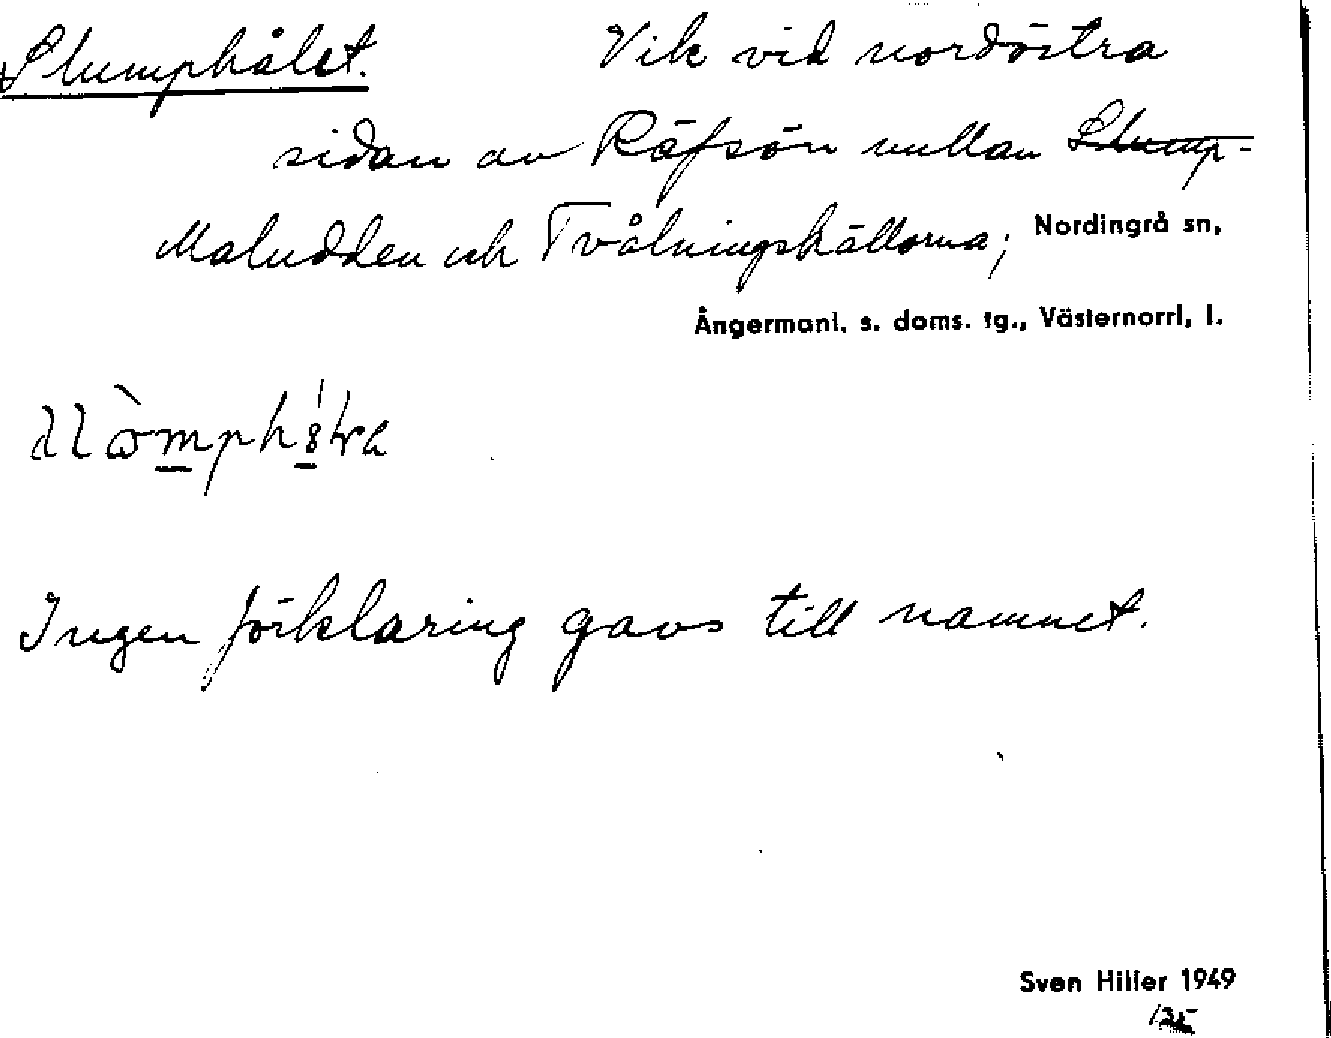 Slumphålet. Vik vid nordöstra
sidan av Räfsön mellan Slump-
Maludden och Tvålningshällorna; Nordingrå sn,
Ångermanl. s. doms. tg., Västernorrl. l.
Ingen förklaring gavs till namnet.
Sven Hiller 1949